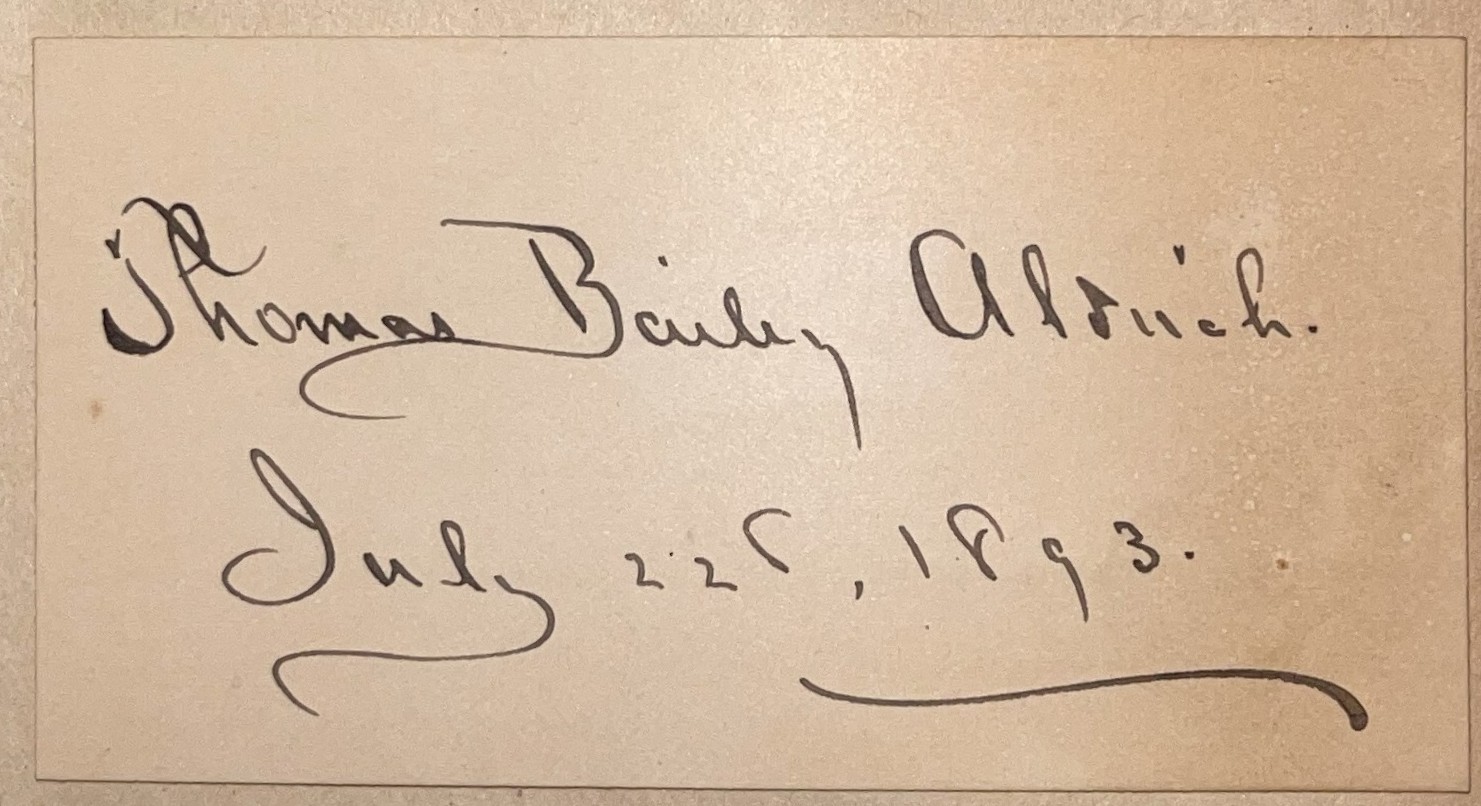 Thomas Bailey Aldrich.
July 22d, 1893.